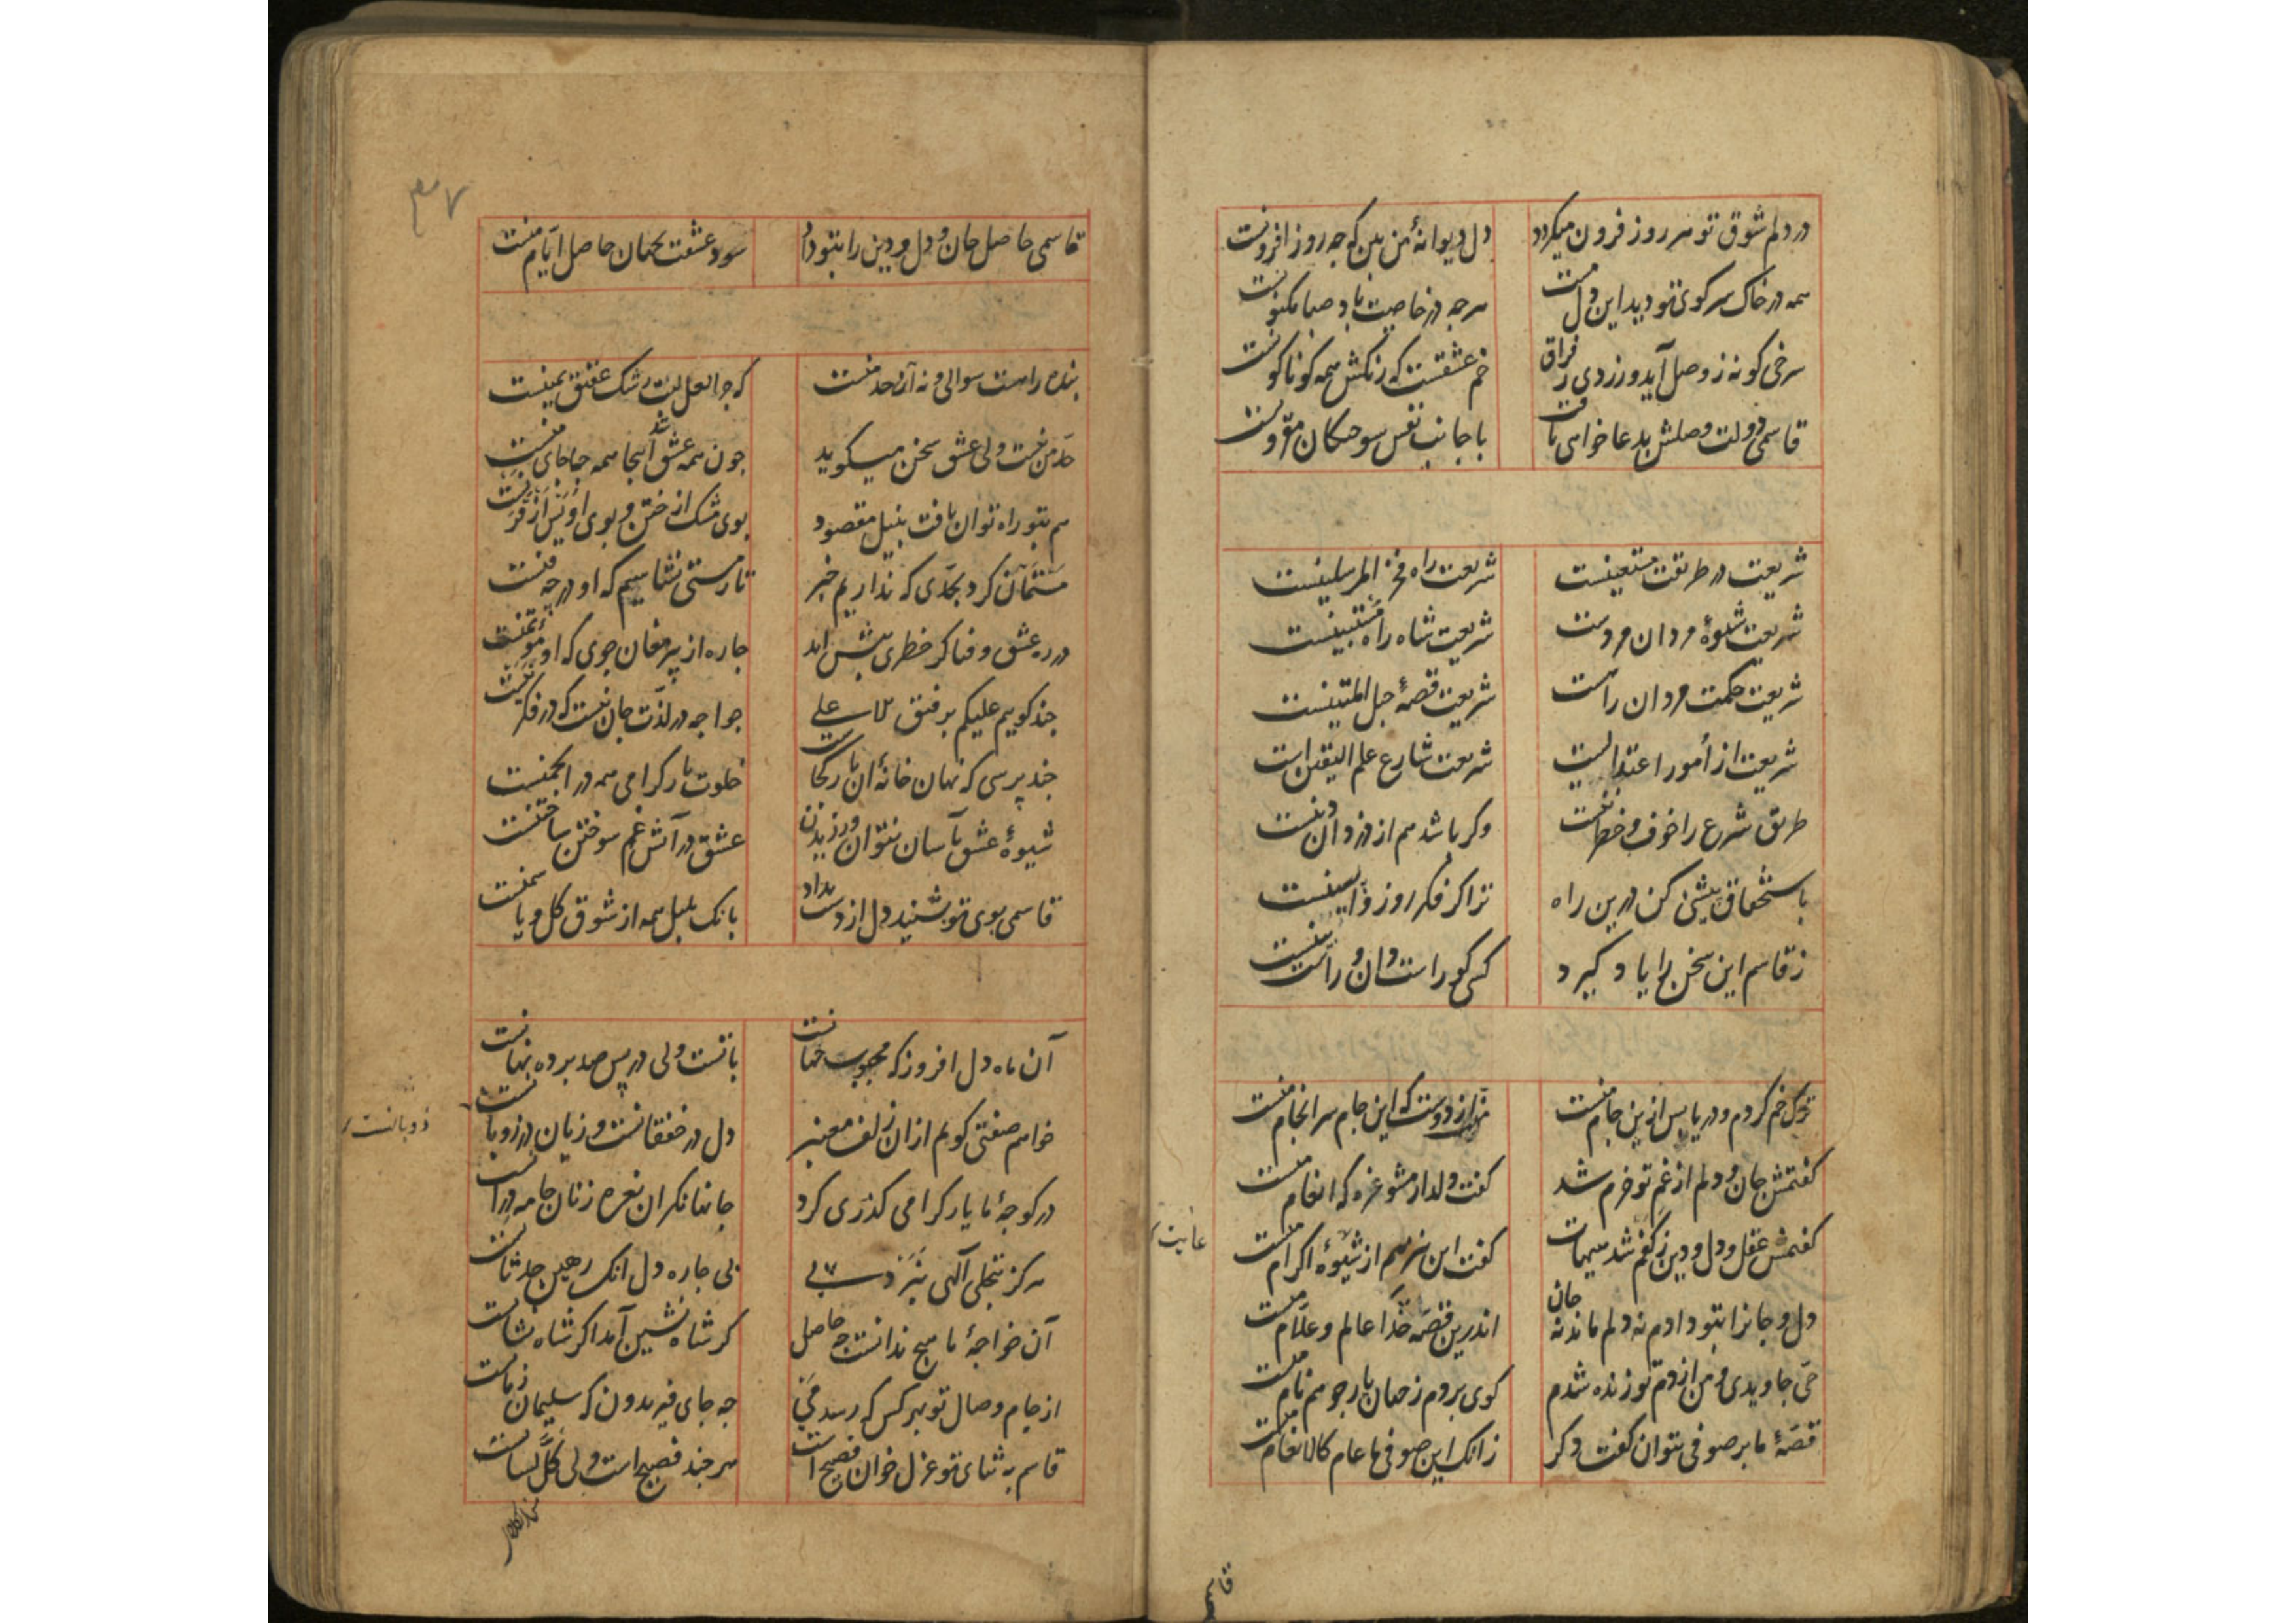 در دلم شوق تو هر روز فزون میکردد دل دیوانهٔ من بین که چه روز افزونست
همه در خاک سر کوی تو دید این دل مست هرچه در خاصیت باد صبا مکنونست
سرخی کونه ز وصل آید و زردی ز فراق خم عشقست که رنکش همه کوناکونست
قاسمی دولت وصلش بدعا خواهی یافت با نفس سوختکان مقرونست
شریعت در طریقت مستعینست شریعت راه فخر المرسلینست
شریعت شیوهٔ مردان مردست شریعت شاه راه مستبینست
شریعت حکمت مردان راهست شریعت قصهٔ حبل المتینست
شریعت از امور اعتدالیست شریعت شارع علم الیقین است
طریق شرع را خوف و خطر نیست وکر باشد هم از دزدان دینست
باستحقاق بیشی کن درین راه ترا کر فکر روز واپسینست
ز قاسم این سخن را یاد کیرد کسی کو راست دان و راست بینست
خم کردم و دریا پس ازین جام منست از دوست که این جام سرانجام منست
کفتمش جان و دلم از غم تو خرم شد کفت دلدار مشو غره که انعام منست
کفتمش عقل و دل و دین ز کفم شد هیهات کفت این هم از شیوهٔ اکرام منست
دل و جانرا بتو دادم نه دلم ماند نه جان اندرین قصه خدا عالم و علام منست
حی جاویدی و من از دم تو زنده شدم کوی بردم ز جهان یار چو هم نام منست
قصهٔ ما بر صوفی نتوان کفت دکر زانک این صوفی ما عام کالانعام منست
غایت
۳۷
قاسمی حاصل جان و دل و دین را بتو داد سود عشقت بجهان حاصل ایام منست
بنده را هست سوالی و نه آن حد منست که چرا لعل لبت رشک عقیق یمنست
حد من نیست ولی عشق سخن میکوید چون همه عشق شد اینجا همه جا جای منست
هم بتو راه توان یافت بنیل مقصود بوی مشک از ختن و بوی اویس از قرنست
مستمان کرد بحدی که نداریم خبر تا ز مستی نشناسیم که او در چه فنست
در ره عشق و فنا کر خطری پیش اید چاره از پیر مغان جوی که او مؤتمنست
چند کوییم علیکم برفیق علی
چند پرسی که نهان خانهٔ ان یار کجاست خلوت یار کرامی همه در انجمنست
شیوهٔ عشق بآسان نتوان ورزیدن عشق در آتش غم سوختن ساختنست
قاسمی بوی تو بشنید دل از دست بداد بانک بلبل همه از شوق کل و یاسمنست
آن ماه دل افروز که محبوب جهانست باتست ولی در پس صد پرده نهانست
خواهم صفتی کویم ازان زلف معنبر دل در خفقانست و زبان در ذوبانست
در کوچهٔ ما یار کرامی کذری کرد جانها نکران نعره زنان جامه درانست
هرکز بتجلی آلهی نبرد پی بی چاره دل انک رهین حدثانست
آن خواجهٔ ما هیچ ندانست چه حاصل کر شاه نشین آمد اکر شاه نشانست
از جام وصال تو بهر کس که رسد می چه جای فریدون که سلیمان زمانست
قاسم به ثنای تو غزل خوان فصیح است هرچند فصیح است ولی کل لسانست
ذوبانست